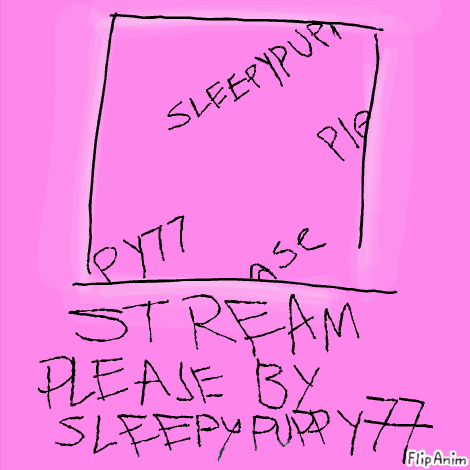 SLEEPYPUP
PLE
PY77
ASE
STREAM
PLEASE BY
SLEEPYPUPPY77
FlipAnim